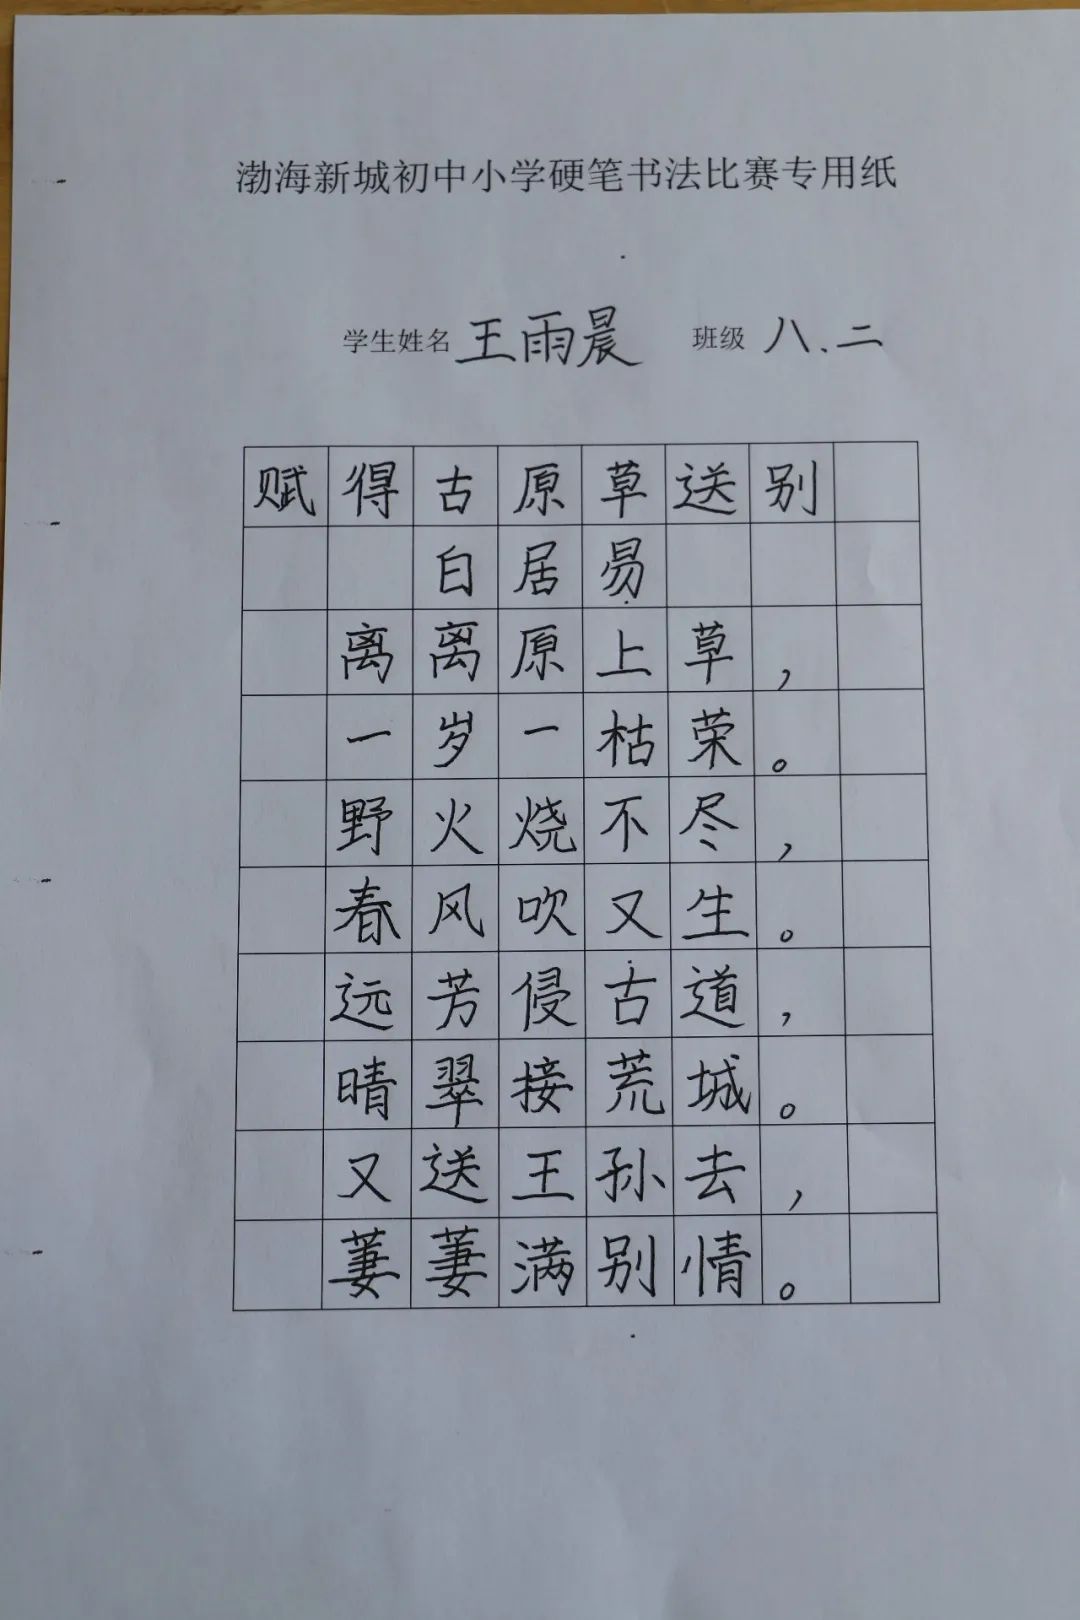 渤海新城初中小学硬笔书法比赛专用纸
学生姓名 王雨晨 班级 八.二
赋得古原草送别
白居易
离离原上草，
一岁一枯荣。
野火烧不尽，
春风吹又生。
远芳侵古道，
晴翠接荒城。
又送王孙去，
萋萋满别情。